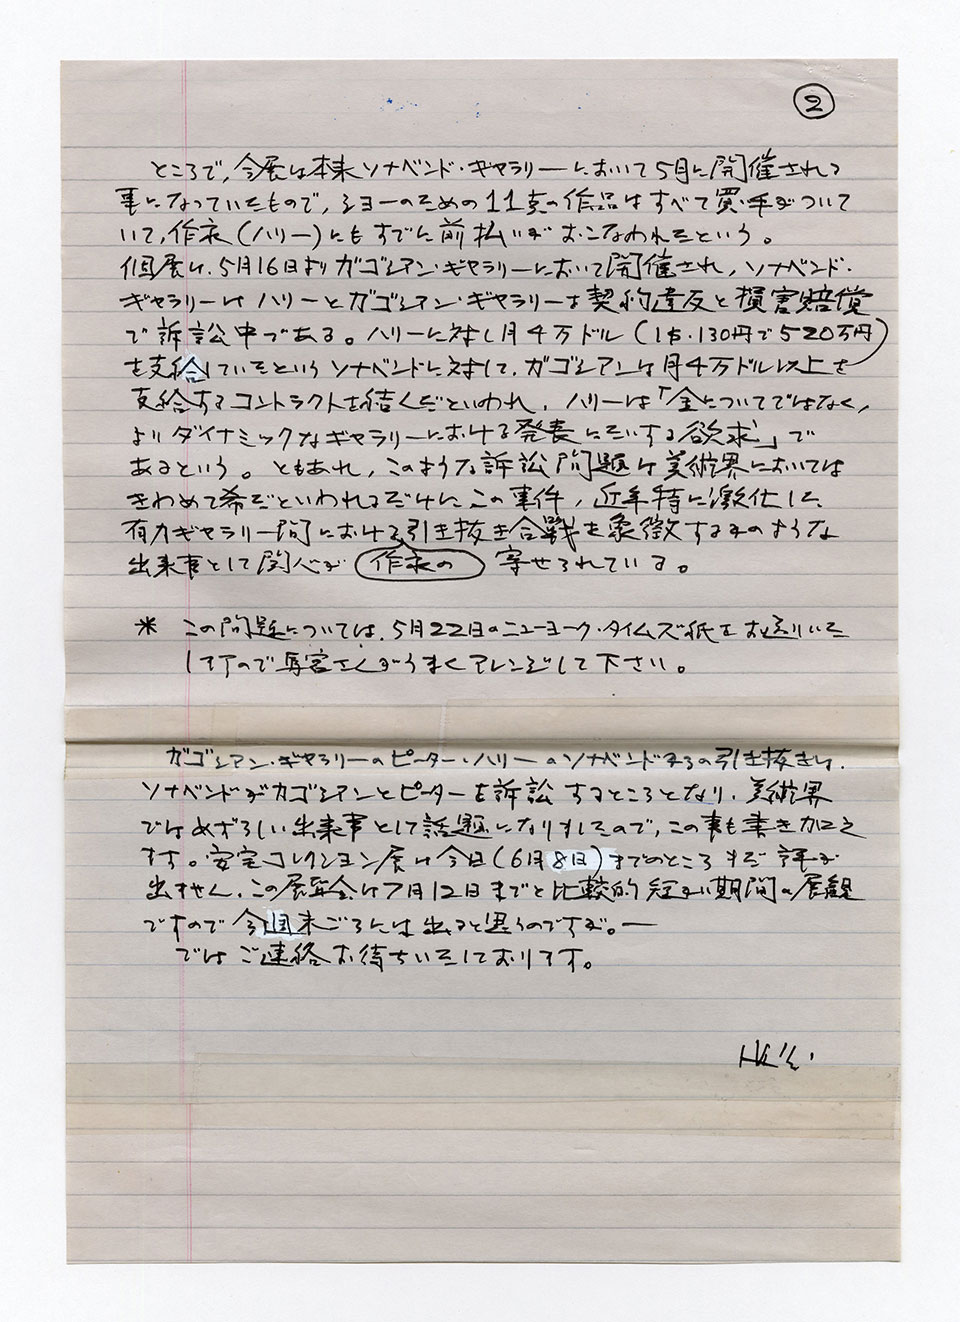 ②
ところで、今展は本来ソナベンド・ギャラリーにおいて5月に開催される
事になっていたもので、ショーのための11点の作品はすべて買い手がついて
いて、作家(ハリー)にもすでに前払いがおこなわれたという。
個展は、5月16日よりガゴシアン・ギャラリーにおいて開催され、ソナベンド・
ギャラリーはハリーとガゴシアン・ギャラリーを契約違反と損害賠償
で訴訟中である。ハリーに対し月4万ドル(1$・130円で520万円)
を支給していたというソナベンドに対して、ガゴシアンは月4万ドル以上を
支給するコントラクトを結んだといわれ、ハリーは「金についてではなく、
よりダイナミックなギャラリーにおける発表にたいする欲求」で
あるという。ともあれ、このような訴訟問題は美術界においては
きわめて希だといわれるだけに、この事件、近年特に激化した
有力ギャラリー間における作家の引き抜き合戦を象徴するかのような
出来事として関心が寄せられている。
* この問題については、5月22日のニューヨーク・タイムズ紙をお送りいた
しますので与客さんがうまくアレンジして下さい。
ガゴシアン・ギャラリーのピーター・ハリーのソナベンドからの引き抜きは、
ソナベンドがガゴシアンとピーターを訴訟するところとなり、美術界
ではめずらしい出来事として話題になりましたので、この事も書き加え
ます。安宅コレクション展は今日(6月8日)までのところまだ評が
出ません、この展覧会は7月12日までと比較的短かい期間の展観
ですので今週末ごろには出ると思うのですが。ー
ではご連絡お待ちいたしております。